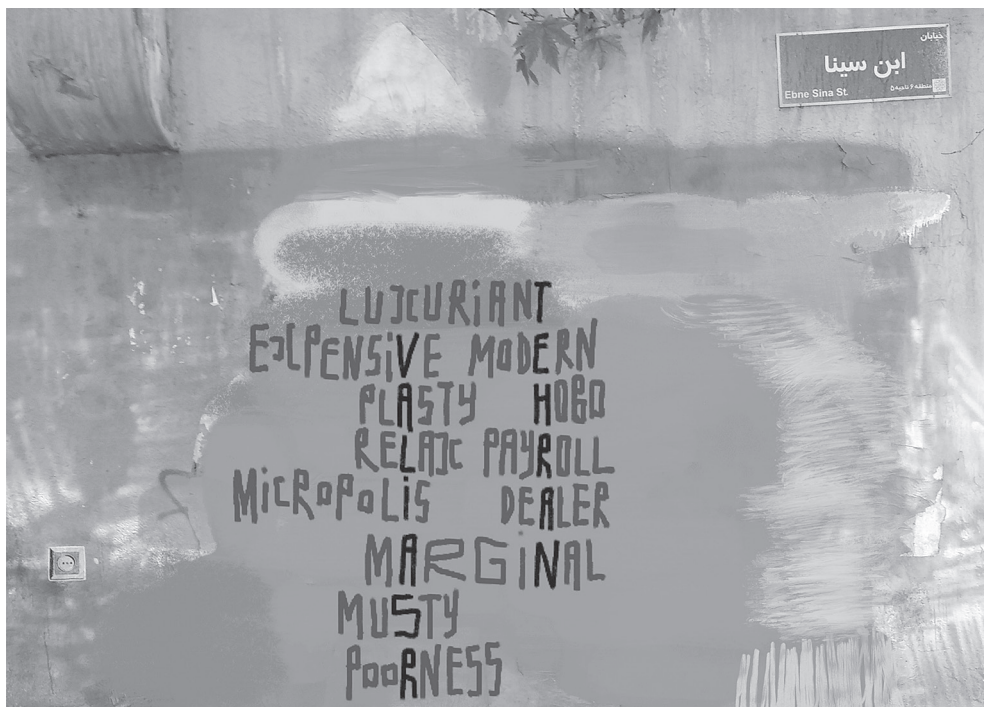 خیابان
ابن سینا
Ebne Sina St. منطقه ۶ ناحیه ۵
LUXURiANT
EXPENSiVE MODERN
PLASTY HOBO
RELAX PAYROLL
MiCROPOLiS DEALER
MARGiNAL
MUSTY
POORNESS